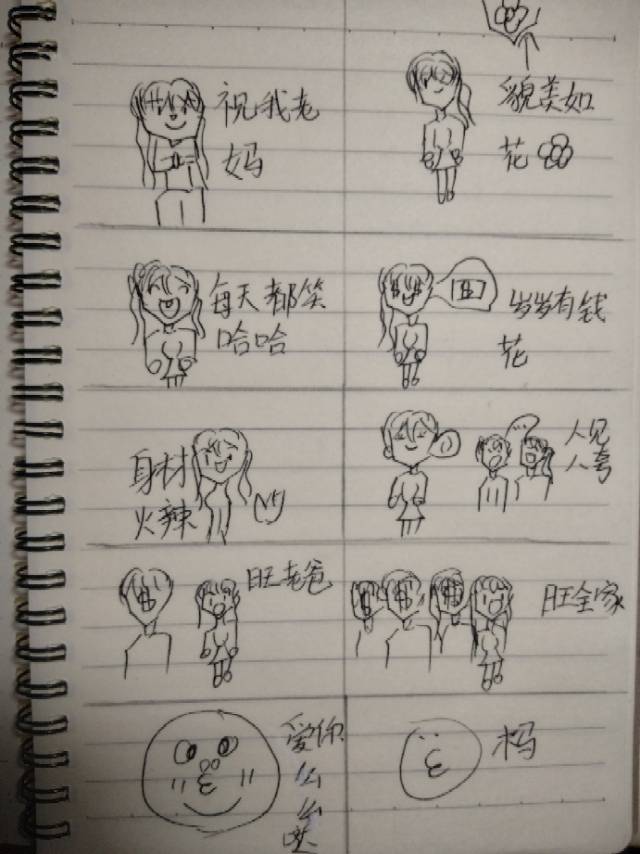 祝我老
妈
貌美如
花
每天都笑
哈哈
岁岁有钱
花
身材
火辣
人见
人夸
旺老爸
旺全家
爱你
么
么
哒
杩